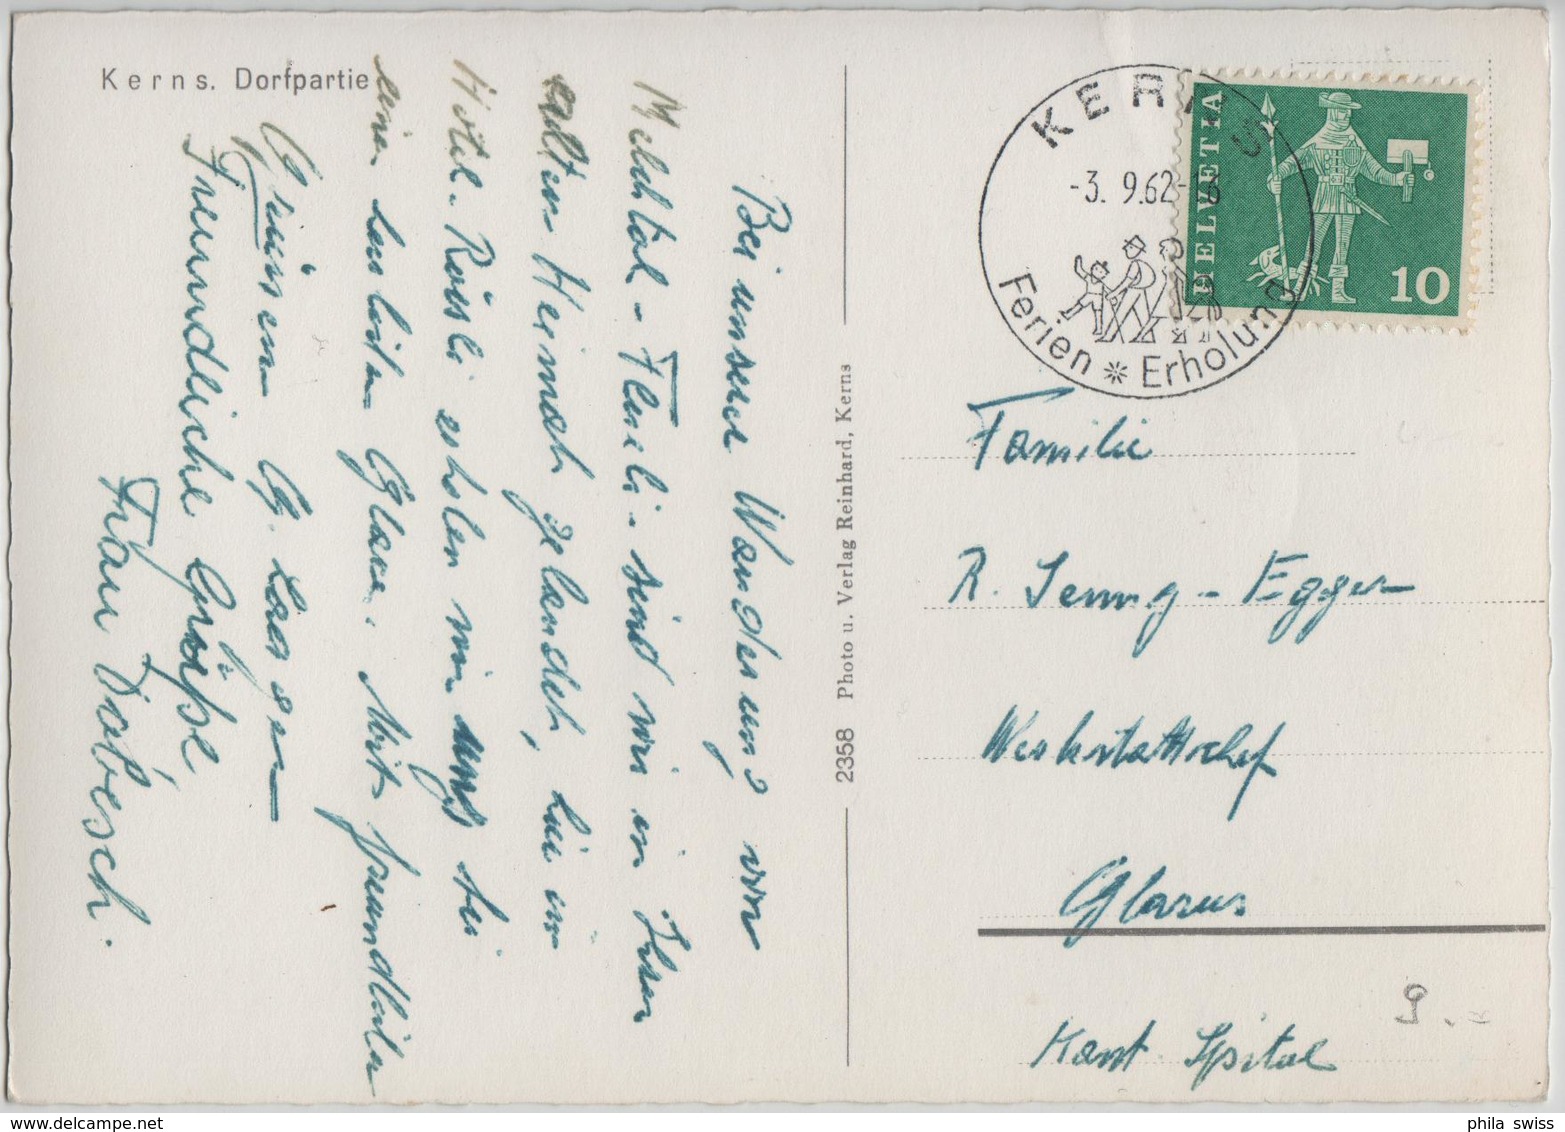 Kerns. Dorfpartie
Bei unserer Wanderung von
Melchtal - Flüeli sind wir in Ihrer
alten Heimat gelandet, hier im
Hotel Rössli erholen wir uns bei
einem Glase. Mit freundlichen
Grüssen
Freundliche Grüße
Frau
2358 Photo u. Verlag Reinhard, Kerns
KERNS
-3. 9.62-18
Ferien * Erholung
HELVETIA
10
Familie
R. Jenny - Egger
Werkstattchef
Glarus
Kant. Spital
9.-
phila swiss